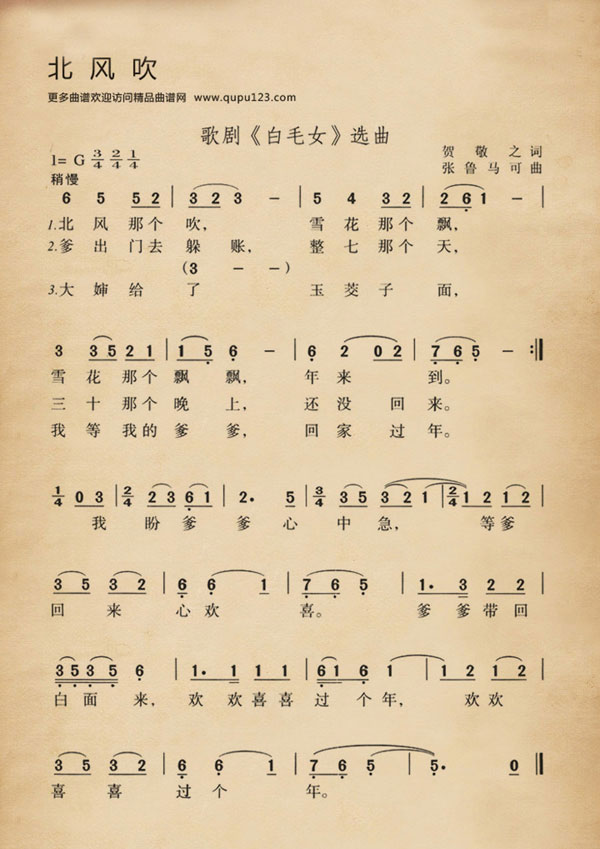 北风吹
更多曲谱欢迎访问精品曲谱网 www.qupu123.com
歌剧《白毛女》选曲
贺敬之词
张鲁马可曲
1= G 3/4 2/4 1/4
稍慢
6 5 52 | 32 3 - | 5 4 32 | 261 - |
1.北风那个吹, 雪花那个飘,
2.爹出门去躲账, 整七那个天,
(3 - -)
3.大婶给了玉茭子面,
3 35 21 | 15 6 - | 6 2 02 | 765 - :||
雪花那个飘飘, 年来到。
三十那个晚上, 还没回来。
我等我的爹爹, 回家过年。
1/4 03 | 2/4 23 61 | 2. 5 | 3/4 35 32 1 | 2/4 12 12 |
我盼爹爹心中急, 等爹
35 32 | 66 1 | 765 - | 1. 3 22 |
回来心欢喜。 爹爹带回
3535 6 | 1. 1 11 | 61 6 1 | 12 12 |
白面来, 欢欢喜喜过个年, 欢欢
35 32 | 6 6 1 | 7 6 5 | 5. 0 ||
喜喜过个年。